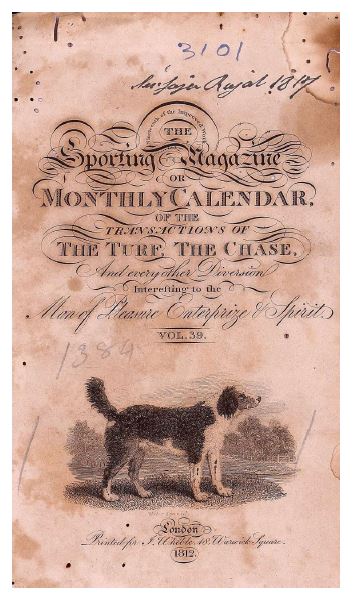 3101
Rajab 1817
THE
Sporting Magazine
OR
MONTHLY CALENDAR,
OF THE
TRANSACTIONS OF
THE TURF, THE CHASE,
And every other Diversion
Interesting to the
Man of Pleasure Enterprize & Spirit.
VOL. 39.
1384
London
Printed for J. Wheble, 18, Warwick Square.
1812.